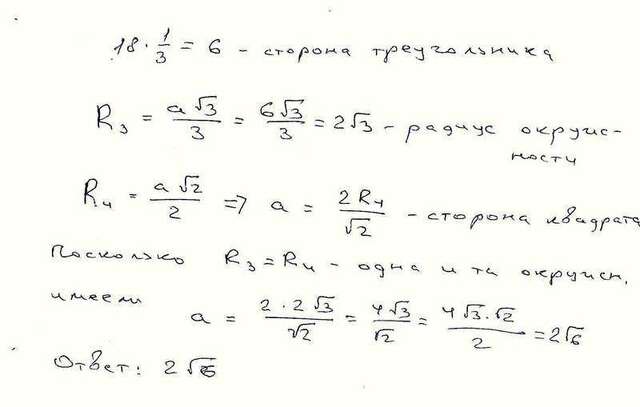 18 · 1/3 = 6 - сторона треугольника
R₃ = a√3/3 = 6√3/3 = 2√3 - радиус окружности
R₄ = a√2/2 => a = 2R₄/√2 - сторона квадрата
Поскольку R₃ = R₄ - одна и та окружн,
имеем
a = 2·2√3/√2 = 4√3/√2 = 4√3·√2/2 = 2√6
Ответ: 2√6